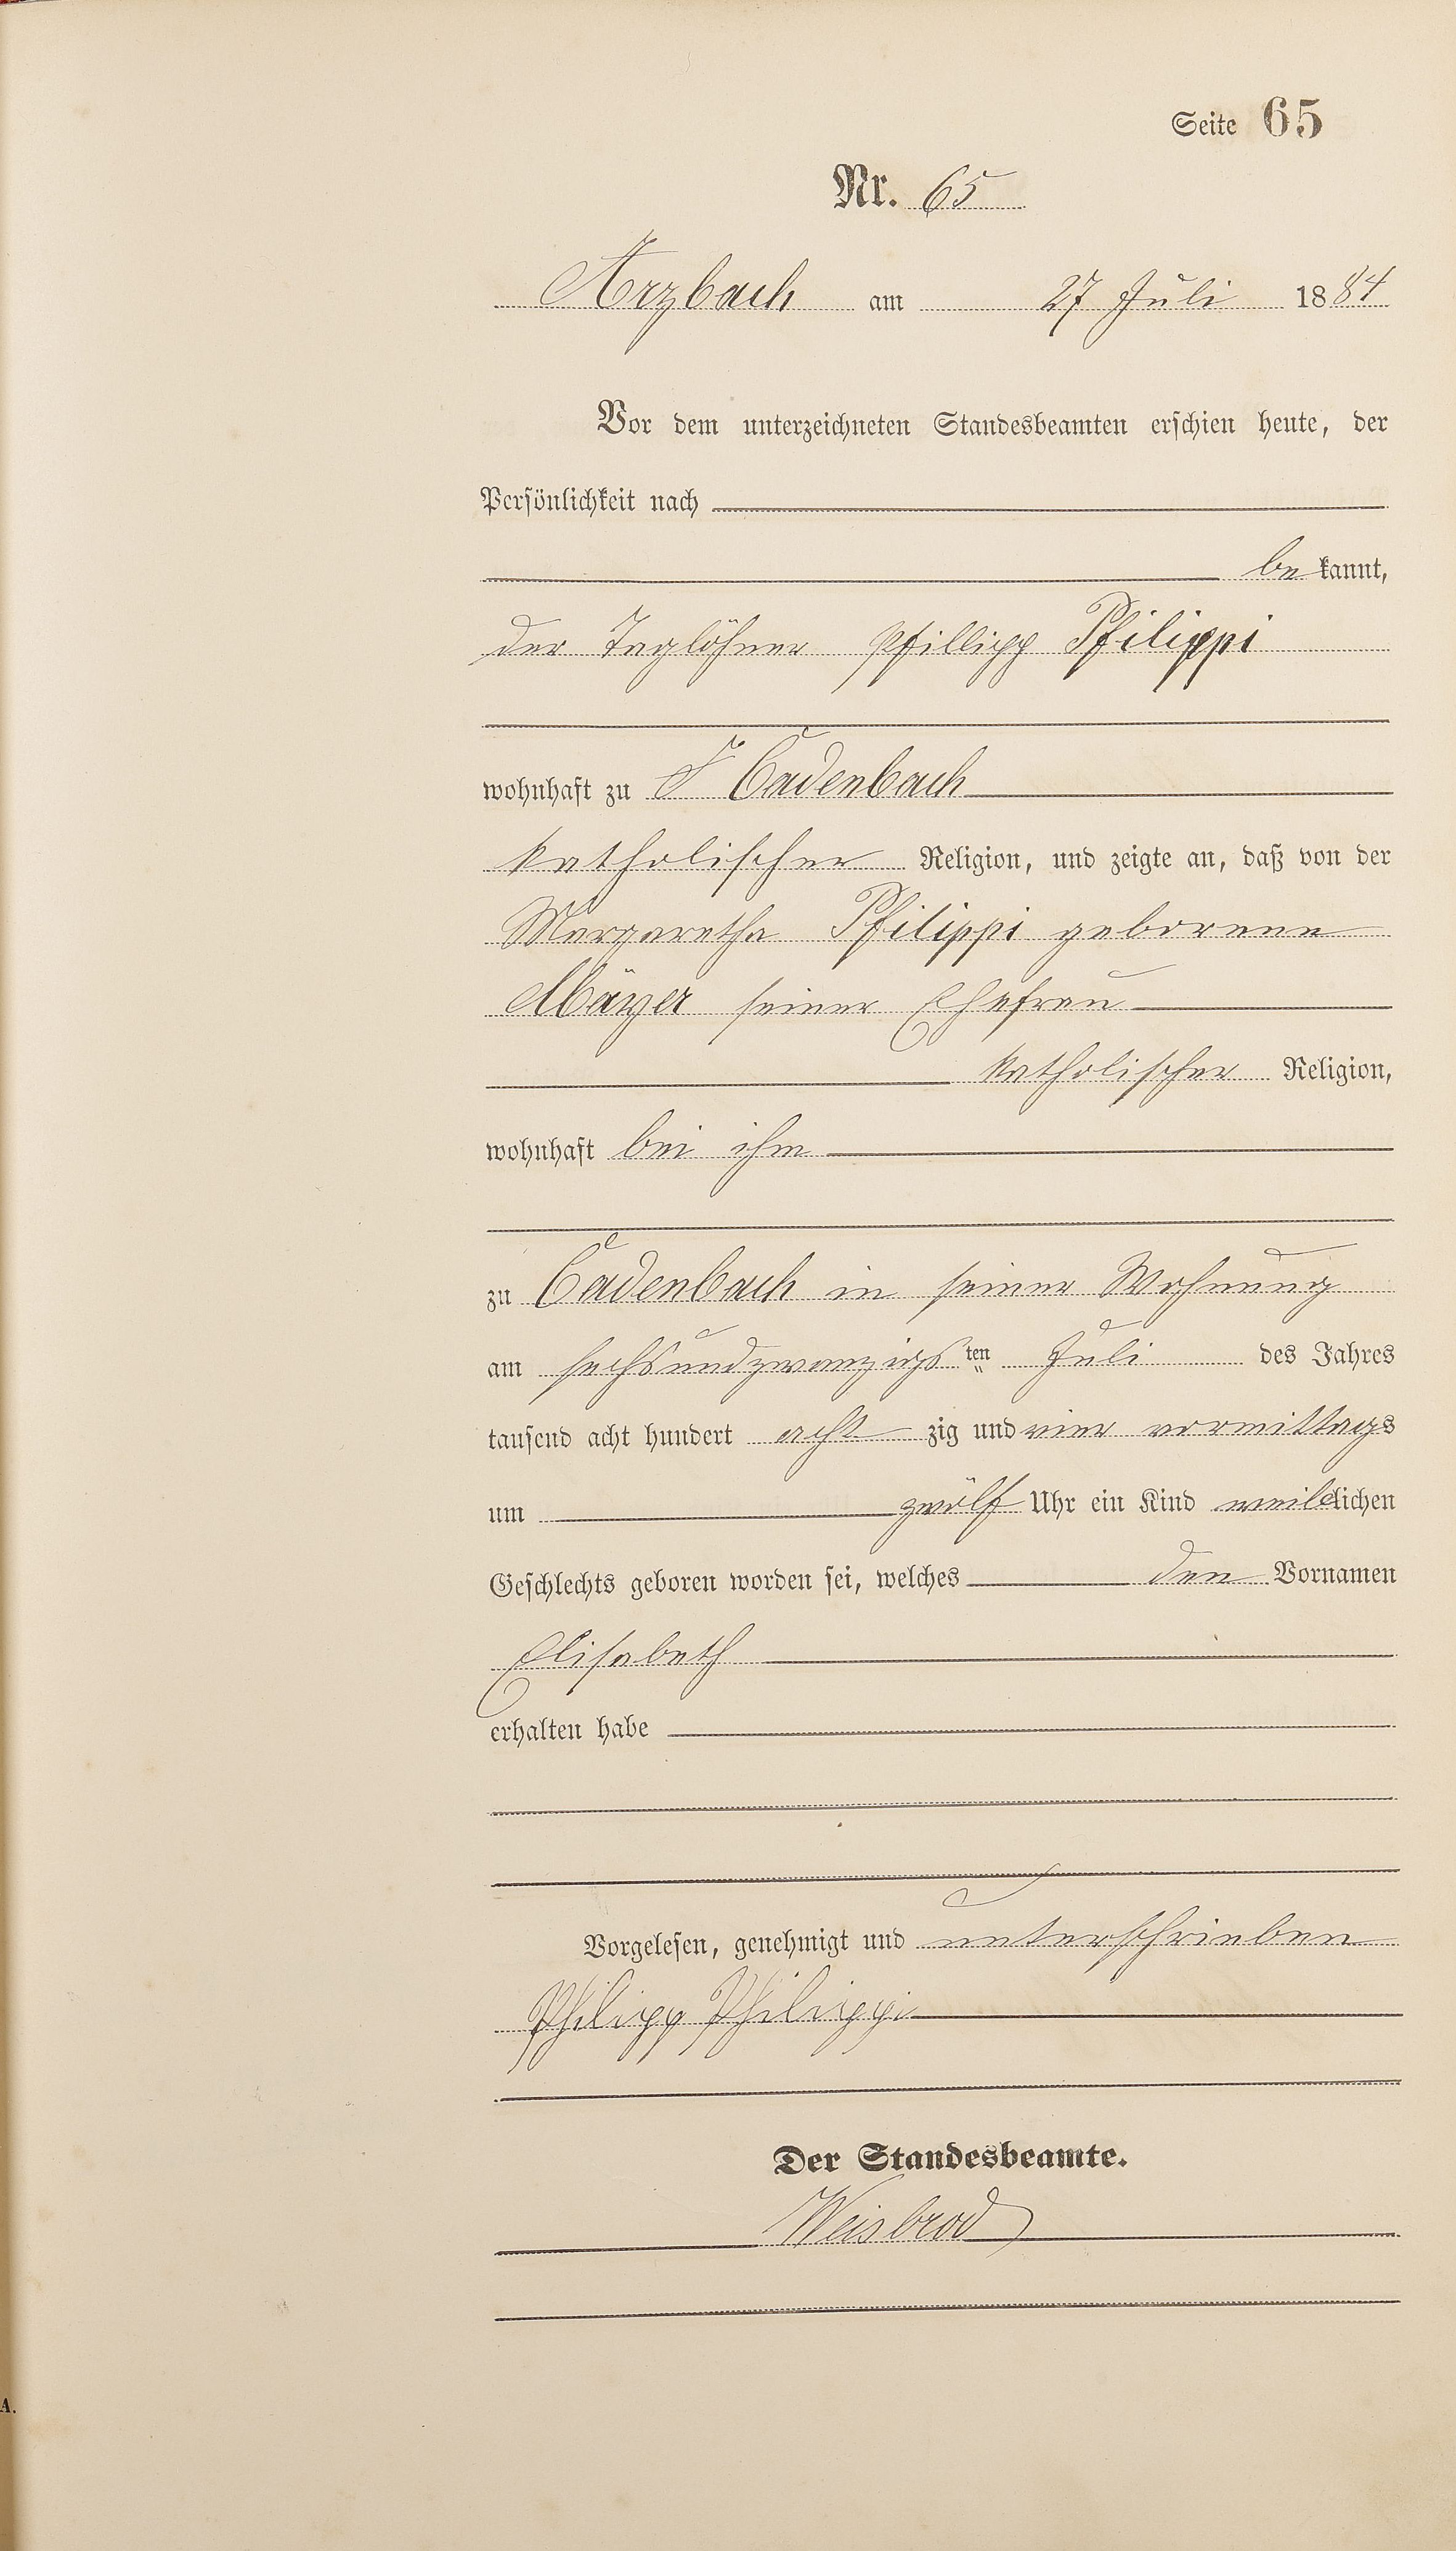 Seite 65
Nr. 65
Arzbach am 27 Juli 1884
Vor dem unterzeichneten Standesbeamten erschien heute, der
Persönlichkeit nach
bekannt,
der Taglöhner Phillipp Philippi
wohnhaft zu Cadenbach
katholischer Religion, und zeigte an, daß von der
Margaretha Philippi geborene
Mäyer seiner Ehefrau
katholischer Religion,
wohnhaft bei ihm
zu Cadenbach in seiner Wohnung
am sechsundzwanzigsten Juli des Jahres
tausend acht hundert achtzig und vier vormittags
um zwölf Uhr ein Kind weiblichen
Geschlechts geboren worden sei, welches den Vornamen
Elisabeth
erhalten habe
Vorgelesen, genehmigt und unterschrieben
Philipp Philippi
Der Standesbeamte.
Weisbrod
A.